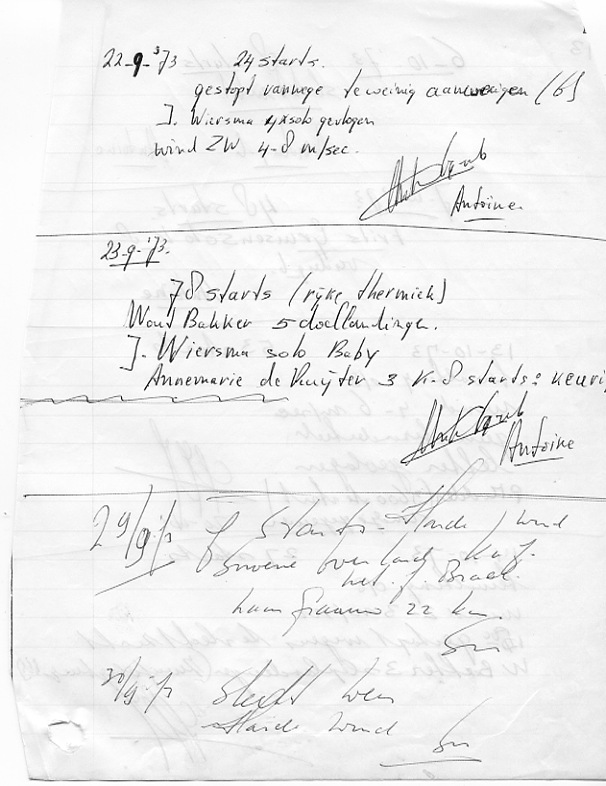 22-9-'73 24 starts.
gestopt vanwege te weinig aanwezigen (6)
J. Wiersma 4x solo gevlogen
wind ZW 4-8 m/sec.
Antoine
23-9-'73.
78 starts (rijke thermiek)
Wout Bakker 5 doellandingen.
J. Wiersma solo Baby
Annemarie de Ruijter 3 K-8 starts: keurig
Antoine
29/9 '73 8 starts - Harde wind
overland Ka 7.
met J. Braek.
22 km.
30/9 '73 Slecht weer
Harde wind